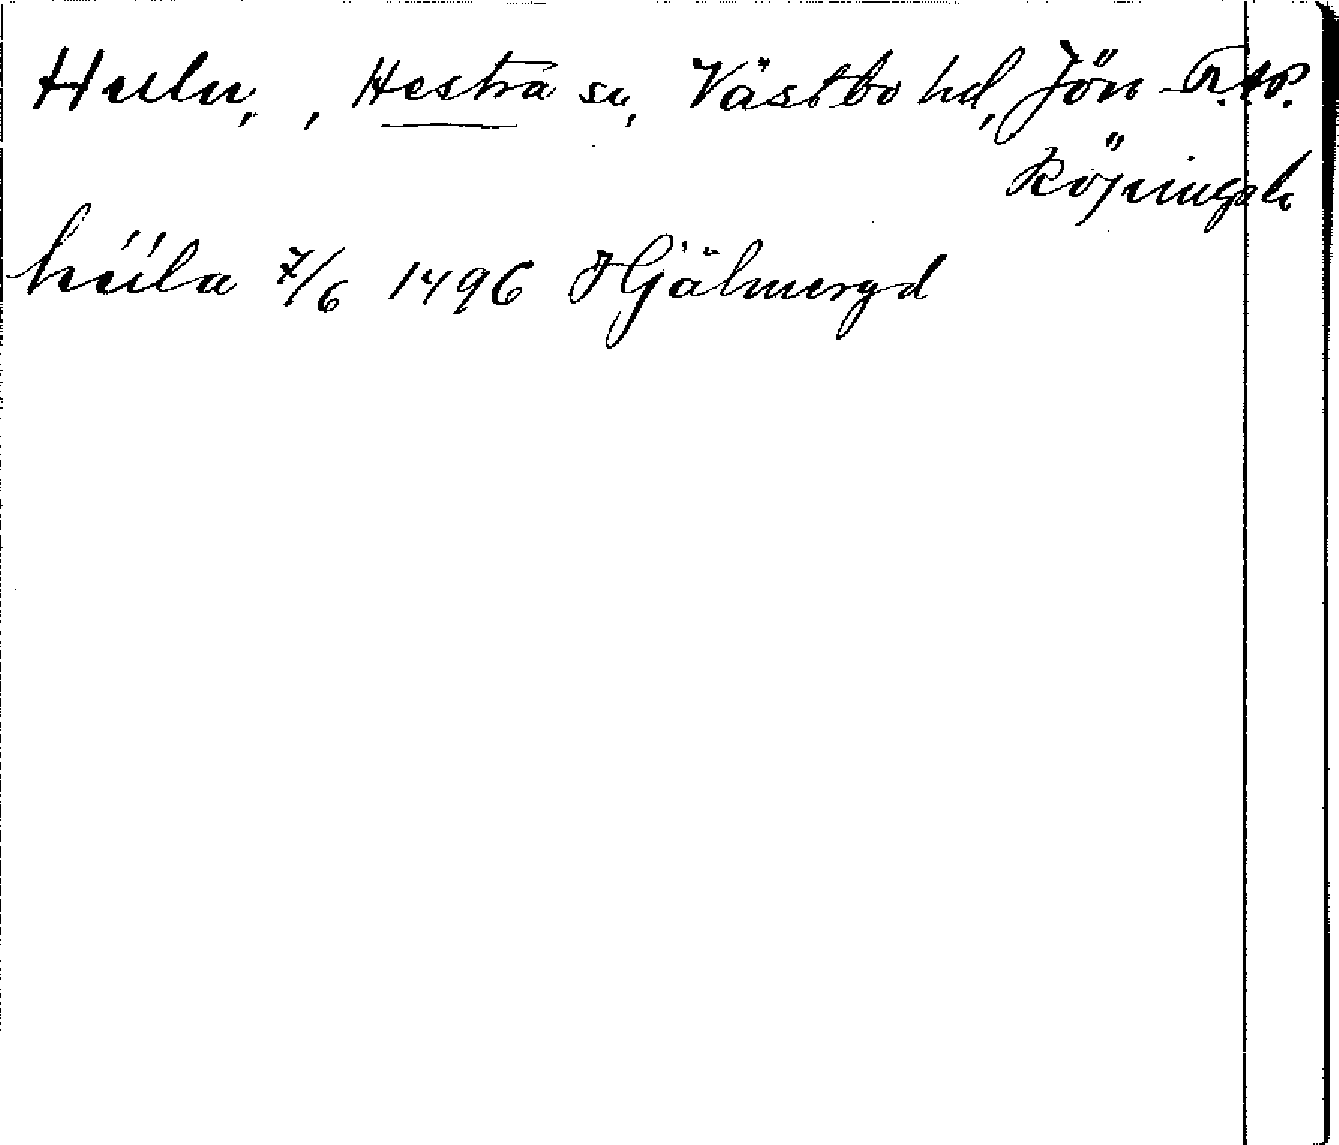 Hulu, , Hestra sn, Västbo hd, Jön-
köpings l.
húúla 7/6 1496 Hjälmergd